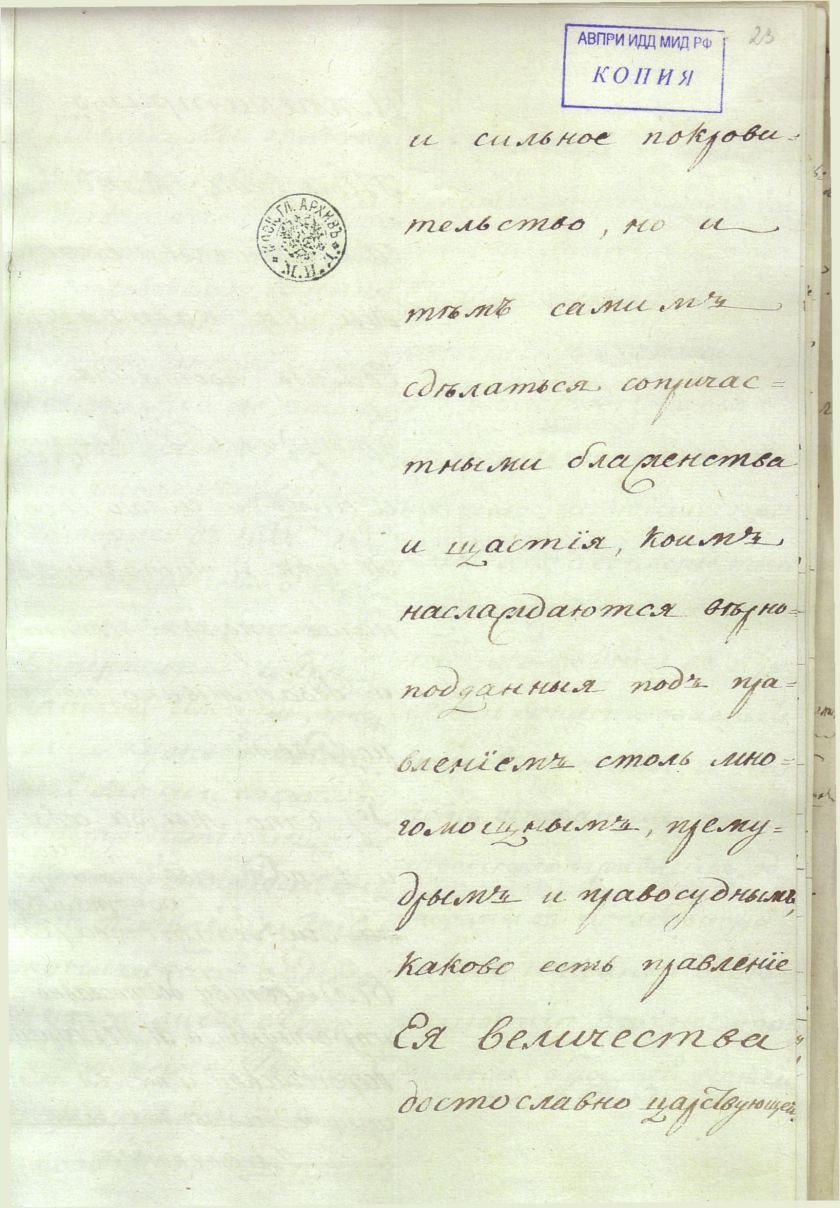 АВПРИ ИДД МИД РФ
КОПИЯ
23
и сильное покрови=
тельство, но и
тѣмъ самимъ
МОСК. ГЛ. АРХИВЪ
М. И. Д.
сдѣлаться сопричас=
тными блаженства
и щастїя, коимъ
наслаждаются вѣрно=
подданныя подъ пра=
вленїемъ столь мно=
гомощнымъ, прему=
дрымъ и правосуднымъ,
каково есть правленїе
Ея величества
достославно царствующей